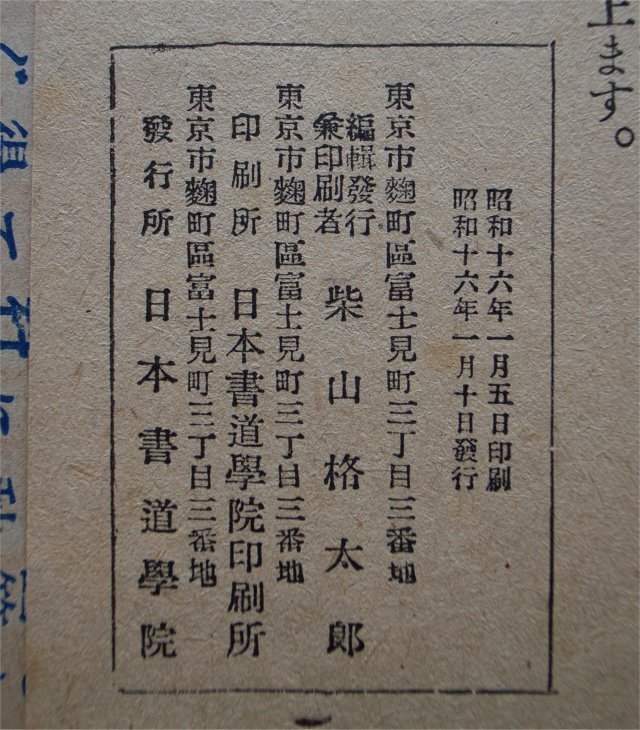 上ます。
昭和十六年一月五日印刷
昭和十六年一月十日發行
東京市麴町區富士見町三丁目三番地
編輯發行
兼印刷者 柴山格太郎
東京市麴町區富士見町三丁目三番地
印刷所 日本書道學院印刷所
東京市麴町區富士見町三丁目三番地
發行所 日本書道學院